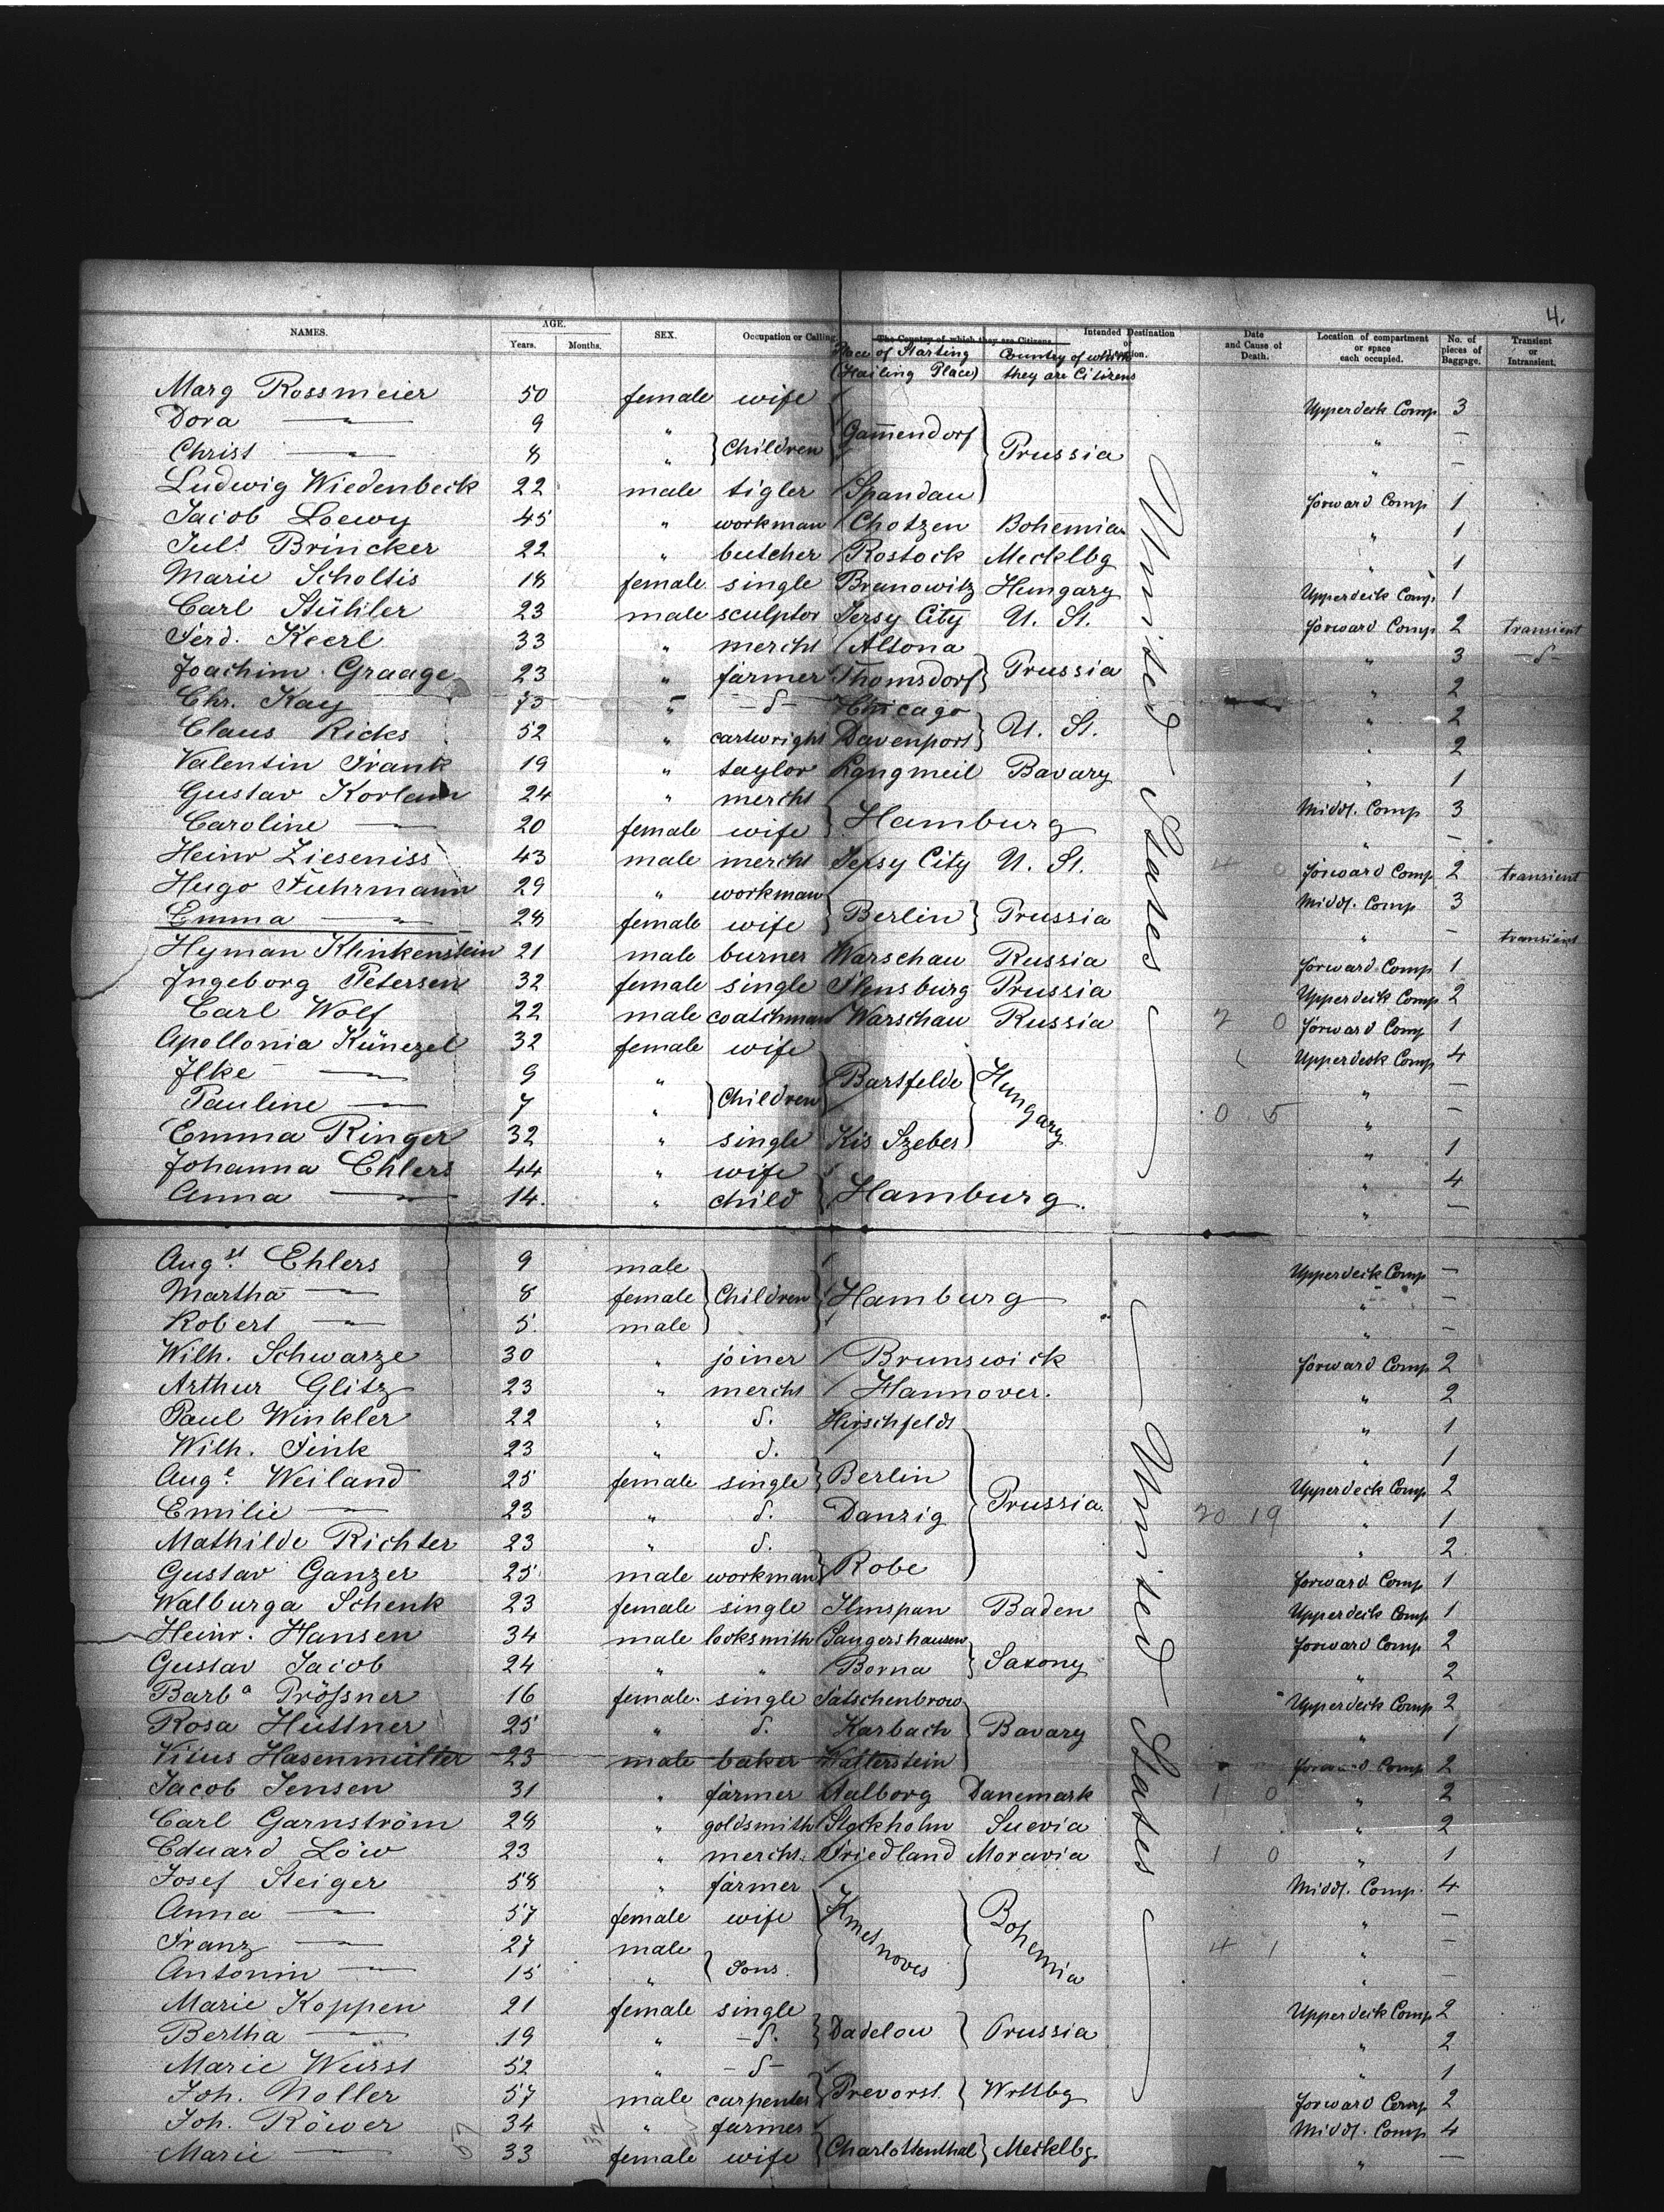 4.
NAMES. AGE. Years. Months. SEX. Occupation or Calling. The Country of which they are Citizens. Intended Destination or Location. Date and Cause of Death. Location of compartment or space each occupied. No. of pieces of Baggage. Transient or Intransient.
Place of Starting (Hailing Place) Country of which they are Citizens
Marg Rossmeier 50 female wife Upperdeck Comp. 3
Dora —"— 9 " Children Gam̅endorf Prussia " —
Christ —"— 8 " " —
Ludwig Wiedenbeck 22 male tigler Spandau forward Comp 1
Jacob Loewy 45 " workman Chotzen Bohemia " 1
Juls Brincker 22 " butcher Rostock Mecklbg " 1
Marie Scholtis 18 female single Branowitz Hungary Upperdeck Comp. 1
Carl Stühler 23 male sculptor Jersy City U. St. forward Comp 2 transient
Ferd. Keerl 33 " mercht Altona Prussia " 3 -d-
Joachim Graage 23 " farmer Thomsdorf " 2
Chr. Kay 75 " -d- Chicago U. St. " 2
Claus Ricks 52 " cartwright Davenport " 2
Valentin Frank 19 " taylor Langmeil Bavary " 1
Gustav Korlann 24 " mercht Hamburg Middl. Comp 3
Caroline —"— 20 female wife " —
Heinr Zieseniss 43 male mercht Jersy City U. St. 4 0 forward Comp 2 transient
Hugo Fuhrmann 29 " workman Berlin Prussia Middl. Comp 3
Emma —"— 28 female wife " — transient
Hyman Klinkenstein 21 male burner Warschau Russia forward Comp 1
Ingeborg Petersen 32 female single Flensburg Prussia Upperdeck Comp 2
Carl Wolf 22 male coatchman Warschau Russia 2 0 forward Comp 1
Apollonia Künezel 32 female wife Bartfelde Hungary Upperdeck Comp 4
Ilke —"— 9 " Children " —
Pauline —"— 7 " 0 5 " —
Emma Ringer 32 " single Kis Szeber " 1
Johanna Ehlers 44 " wife Hamburg. " 4
Anna —"— 14. " child " —
United States
Augst. Ehlers 9 male Children Hamburg Upperdeck Comp —
Martha —"— 8 female " —
Robert —"— 5. male " —
Wilh. Schwarze 30 " joiner Brunswick forward Comp 2
Arthur Glitz 23 " mercht Hannover. " 2
Paul Winkler 22 " d. Hirschfeldt Prussia " 1
Wilh. Fink 23 " d. Berlin " 1
Auge Weiland 25 female single Upperdeck Comp 2
Emilie —"— 23 " d. Danzig 20 19 " 1
Mathilde Richter 23 " d. Robe " 2
Gustav Ganzer 25 male workman forward Comp 1
Walburga Schenk 23 female single Ilmspan Baden Upperdeck Comp 1
Heinr. Hansen 34 male locksmith Sangershausen Saxony forward Comp 2
Gustav Jacob 24 " " Borna " 2
Barba Prößner 16 female. single Bavary Upperdeck Comp 2
Rosa Hüttner 25 " d. Karbach " 1
Hasenmüller 23 male baker Wallerstein forward Comp 2
Jacob Jensen 31 " farmer Aalborg Danemark 1 0 " 2
Carl Garnström 28 " goldsmith Stockholm Suevia " 2
Eduard Löw 23 " mercht. Friedland Moravia 1 0 " 1
Josef Steiger 58 " farmer Bohemia Middl. Comp. 4
Anna —"— 57 female wife " —
Franz —"— 27 male Sons 4 1 " —
Antonin —"— 15 " " —
Marie Koppen 21 female single Dadelow Prussia Upperdeck Comp 2
Bertha —"— 19 " -d. " 2
Marie Wurst 52 " -d- Prevorst. Wrttbg " 1
Joh. Noller 57 male carpenter forward Comp 2
Joh. Röwer 34 " farmer Charlottenthal Mecklbg Middl. Comp 4
Marie —"— 33 female wife " —
United States